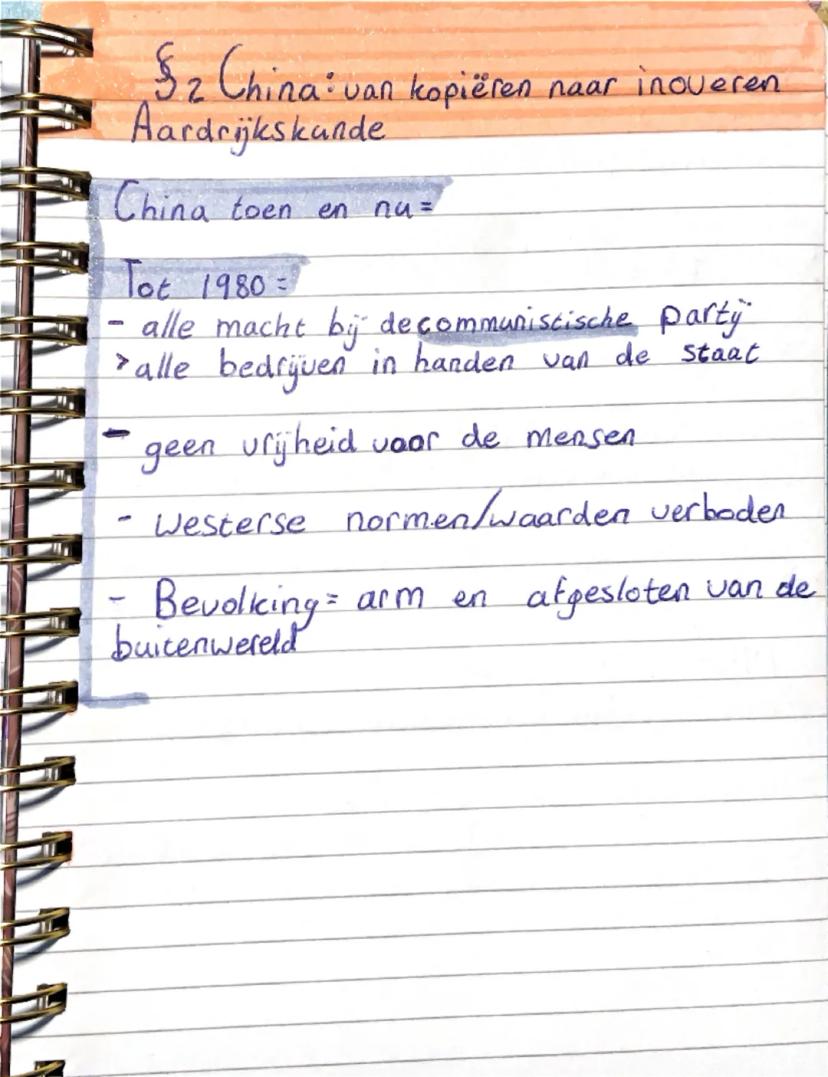 §2 China: van kopiëren naar inoveren
Aardrijkskunde
China toen en nu=
Tot 1980=
- alle macht bij de communistische partij
> alle bedrijven in handen van de staat
- geen vrijheid voor de mensen
- westerse normen/waarden verboden
- Bevolking= arm en afgesloten van de
buitenwereld